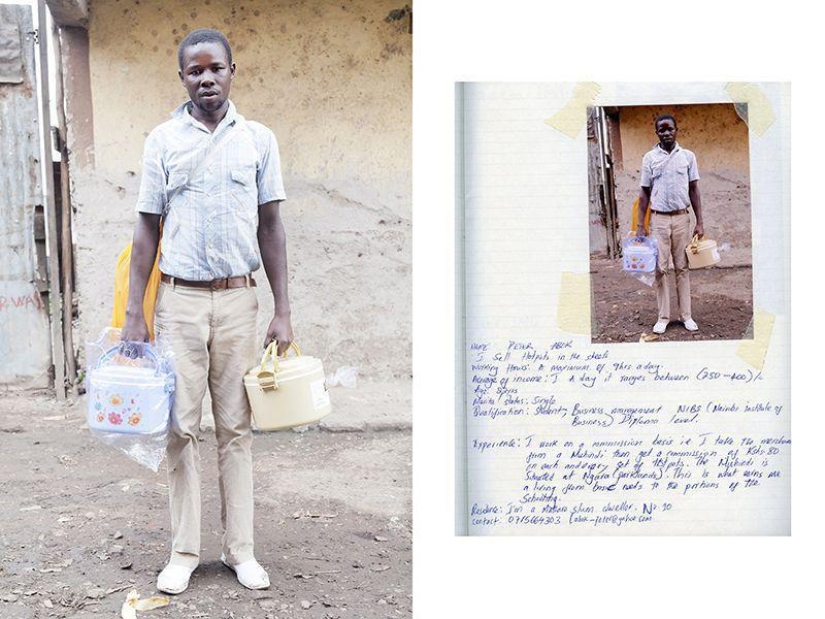 R. WAY
NAME PETER ABOK
I sell Hotpots in the streets
Working Hours: A maximum of 9hrs a day.
Average of income: I A day it ranges between (250 – 400)/=
Age:
Marital status: Single
Qualification: Studenty Business management NIBS (Nairobi institute of
Business) Diploma level.
Experience: I work on a commission basis i.e. I take the merchan
from a Muhindi then get a commission of Kshs. 80
in each and every set of Hotpots. The Muhindi is
situated at Ngara (parklands). This is what earns me
a living from basic needs to the portions of the
Schooling.
Residence: I'm a Mathare slum dweller. No 10
contact: